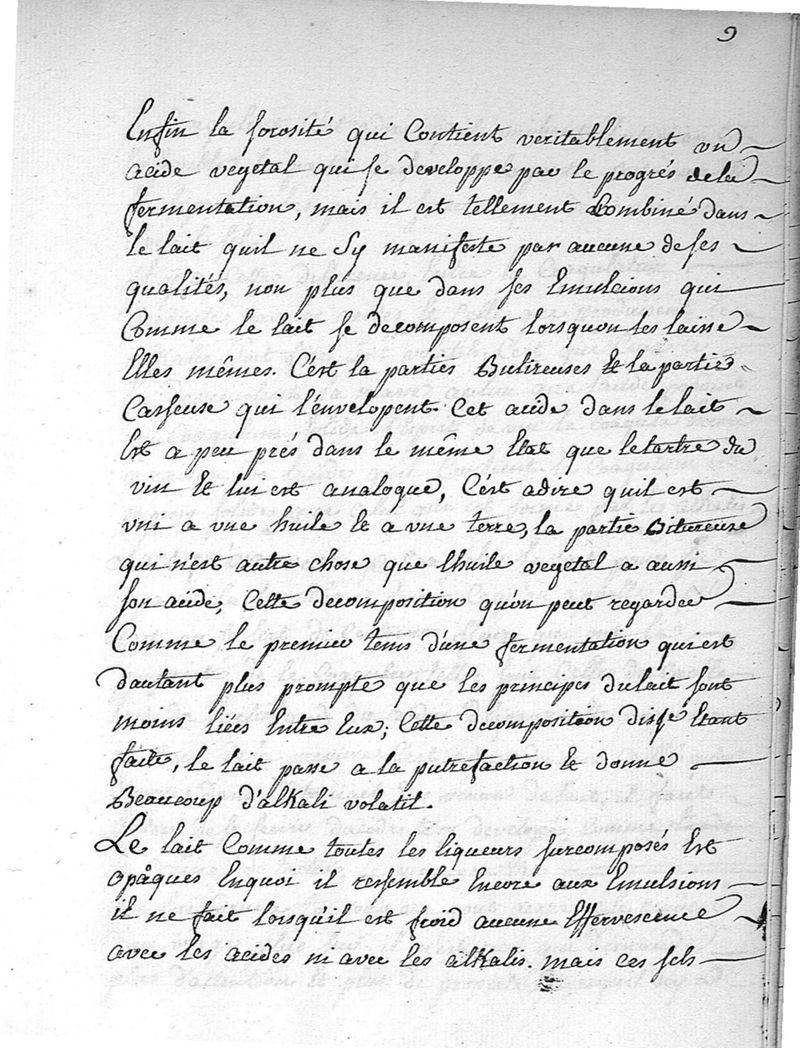 9
Enfin la sorosité qui Contient veritablement un
acide vegetal qui se developpe par le progrés de la
fermentation, mais il est tellement Combiné dans
le lait quil ne Sy manifeste par aucune de ses
qualités, non plus que dans ses Emulsions qui
Comme le lait se decomposent lorsquon les laisse
Elles mêmes. C'est la parties Butireuses & la partie
Casseuse qui l'envelopent. Cet acide dans le lait
Est a peu prés dans le même Etat que le tartre du
vin Et lui est analogue, C'est adire quil est
vni a vne huile Et a vne terre, la partie Bitureuse
qui n'est autre chose que l'huile vegetal a aussi
son acide, Cette decomposition qu'on peut regarder
Comme le premier tems d'une fermentation qui est
dautant plus prompte que les principes du lait sont
moins liées Entre Eux; Cette decomposition dis je Etant
faite, le lait passe a la putrefaction Et donne
Beaucoup d'alkali volatil.
Le lait Comme toutes les liqueurs surcomposés Est
opâques Enquoi il ressemble Encore aux Emulsions
il ne fait lorsqu'il est froid aucune Effervescence
avec les acides ni avec les alkalis. mais ces sels